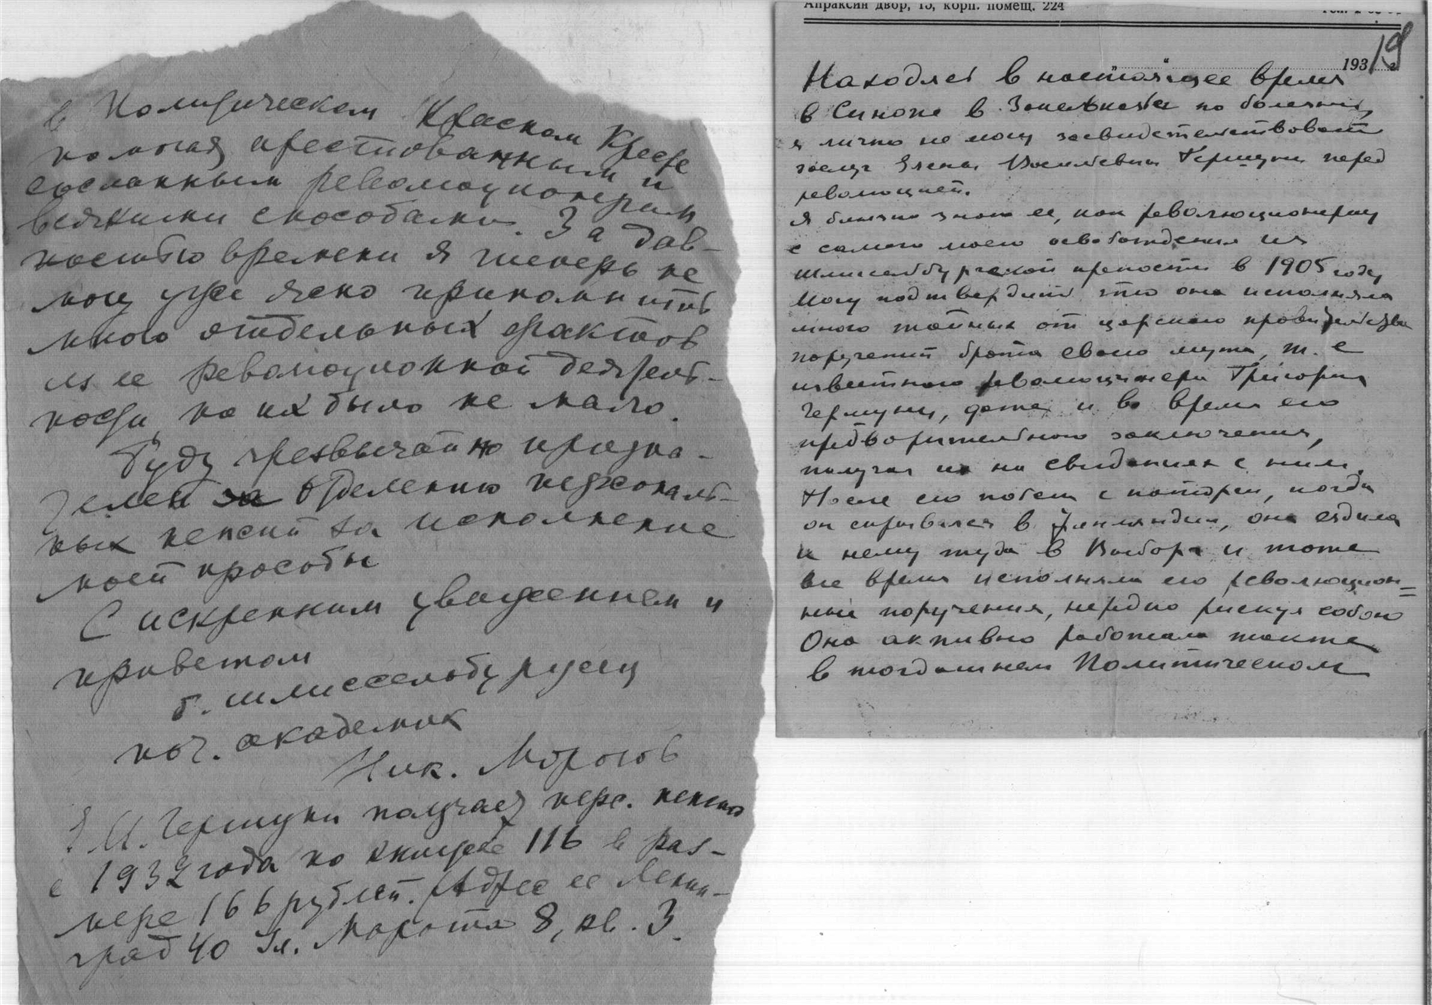 Апраксин двор, 15, корп. помещ. 224
193 г
19
Находясь в настоящее время
в Синопе в Закавказье по болезни,
я лично не могу засвидетельствовать
заслуг Елены Гершуни перед
революцией.
Я близко знаю ее, как революционерку
с самого моего освобождения из
Шлиссельбургской крепости в 1905 году
Могу подтвердить что она исполняла
много тайных от царского правительства
поручений брата своего мужа, т. е
известного революционера Григория
Гершуни, даже и во время его
предварительного заключения,
получая их на свиданиях с ним.
После его побега с каторги, когда
он скрывался в Финляндии, она ездила
к нему туда в Выборг и тоже
все время исполняла его революцион=
ные поручения, нередко рискуя собою
Она активно работала также
в тогдашнем Политическом
в Политическом Красном Кресте
помогая арестованным и
сосланным революционерам
всякими способами. За дав-
ностью времени я теперь не
могу уже ясно припомнить
много отдельных фактов
из ее революционной деятель-
ности, но их было не мало.
Буду чрезвычайно призна-
телен за Отделению персональ-
ных пенсий за исполнение
моей просьбы
С искренним уважением и
приветом
б. шлиссельбуржец
поч. академик
Ник. Морозов
Гершуни получает перс. пенсию
с 1932 года по книжке 116 в раз-
мере 166 рублей. Адрес ее Ленин-
град 40 Ул. Марата 8, кв. 3.